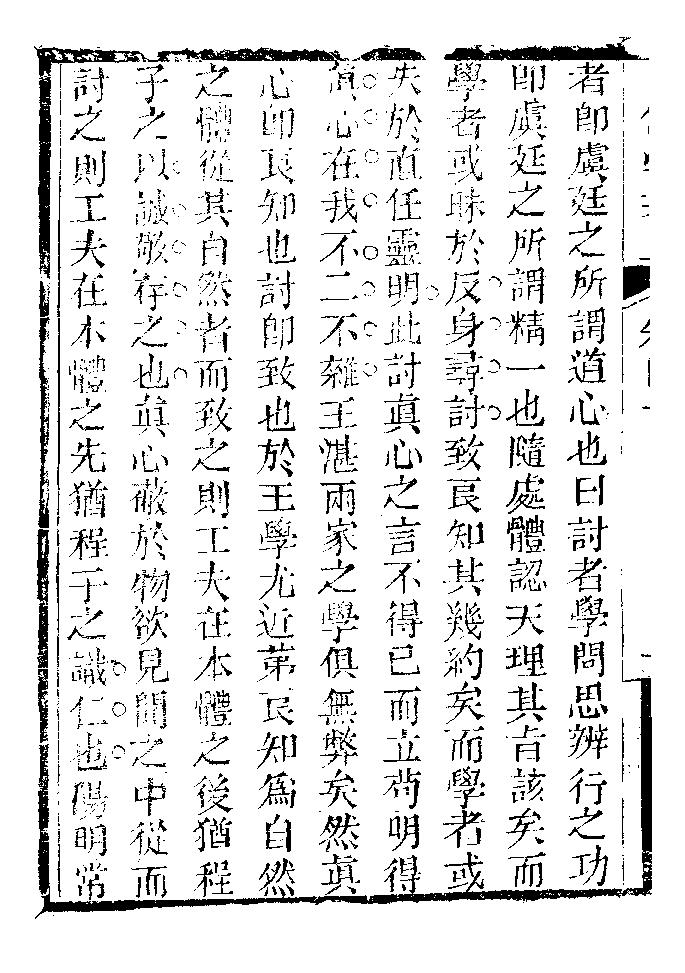 者卽虞廷之所謂道心也曰討者學問思辨行之功
卽虞廷之所謂精一也隨處體認天理其旨該矣而
學者或昧於反身尋討致良知其幾約矣而學者或
失於直任靈明此討眞心之言不得已而立苟明得
眞心在我不二不雜王湛兩家之學俱無弊矣然眞
心卽良知也討卽致也於王學尤近第良知爲自然
之體從其自然者而致之則工夫在本體之後猶程
子之以誠敬存之也眞心蔽於物欲見聞之中從而
討之則工夫在本體之先猶程子之識仁也陽明常